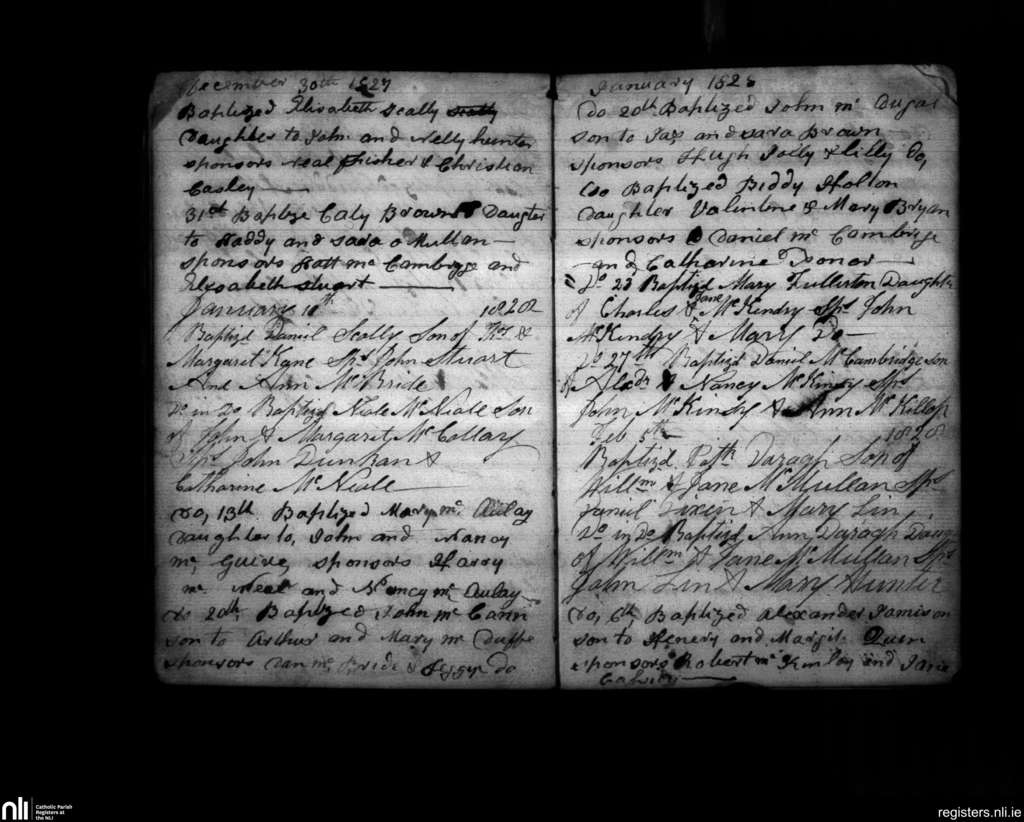 December 30th 1827
Baptized Elisabeth Scally
Daughter to John and Nelly hunter
sponsors Neal Fisher & Christian
Casley
31st Baptize Caty Brown Daugter
to Haddy and sara o Mullan
sponsors Hatt mc Cambrige and
Elisabeth stuart
January 1828
Baptizd Daniel Scally Son of &
Margaret Kane Sps John Stuart
And Ann McBride
Do in Do Baptizd Neale McNeale Son
of John & Margaret McCollary
Sps John Dunkan &
Catharine McNeale
Do, 13th Baptized Mary mc Aulay
Daughter to, John and Nancy
mc Guire sponsors Harry
mc Neal and Nancy mc Aulay
Do 20th Baptized John mc Cann
son to Arthur and Mary mc Duffe
sponsors Dan mc Bride & do
January 1828
Do 20th Baptized John mc Dugal
son to Jas and sara Brown
sponsors Hugh Jolly & Lilly Do,
Do Baptized Biddy Holton
Daughter Valintine & Mary Bryan
sponsors Daniel mc Cambrige
and Catharine
Do 23 Baptizd Mary Fullerton Daughtr
of Charles & Jane McKendry Sps John
McKendry & Mary Do
Do 27th Baptizd Daniel McCambridge son
of Alexdr & Nancy McKinry Sps
John McKindry & Ann McKillop
Feb 5th 1828
Baptizd Patk Daragh Son of
Willm & Jane McMullan Sps
Daniel & Mary Lin
Do in Do Baptizd Ann Daragh Daur
of Willm & Jane McMullan Sps
John Lin & Mary Hunter
Do, 6th Baptized Alexander Jamison
son to Henery and Margit Quin
sponsors Robert mc Kinlay and Jane
nli
Catholic Parish
Registers at
the NLI
registers.nli.ie